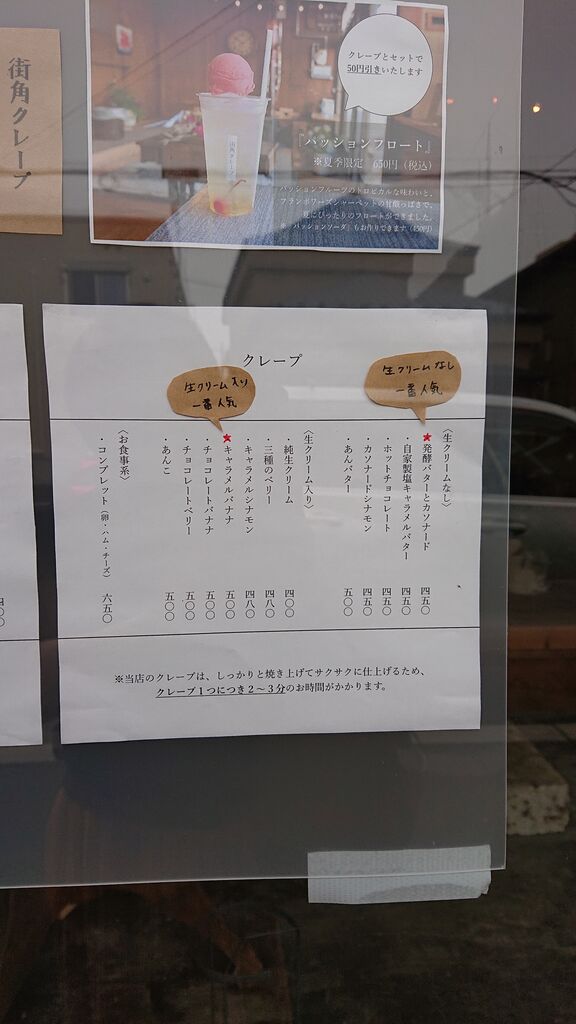 街角クレープ
クレープとセットで
50円引きいたします
『パッションフロート』
※夏季限定 650円（税込）
パッションフルーツのトロピカルな味わいと、
フランボワーズシャーベットの甘酸っぱさで、
夏にぴったりのフロートができました。
※「パッションソーダ」もお作りできます（450円）
クレープ
生クリームなし
一番人気
生クリーム入り
一番人気
〈生クリームなし〉
★発酵バターとカソナード 四五〇
・自家製塩キャラメルバター 四五〇
・ホットチョコレート 四五〇
・カソナードシナモン 四五〇
・あんバター 五〇〇
〈生クリーム入り〉
・純生クリーム 四〇〇
・三種のベリー 四八〇
・キャラメルシナモン 四八〇
★キャラメルバナナ 五〇〇
・チョコレートバナナ 五〇〇
・チョコレートベリー 五〇〇
・あんこ 五〇〇
〈お食事系〉
・コンプレット（卵・ハム・チーズ） 六五〇
※当店のクレープは、しっかりと焼き上げてサクサクに仕上げるため、
クレープ1つにつき2～3分のお時間がかかります。